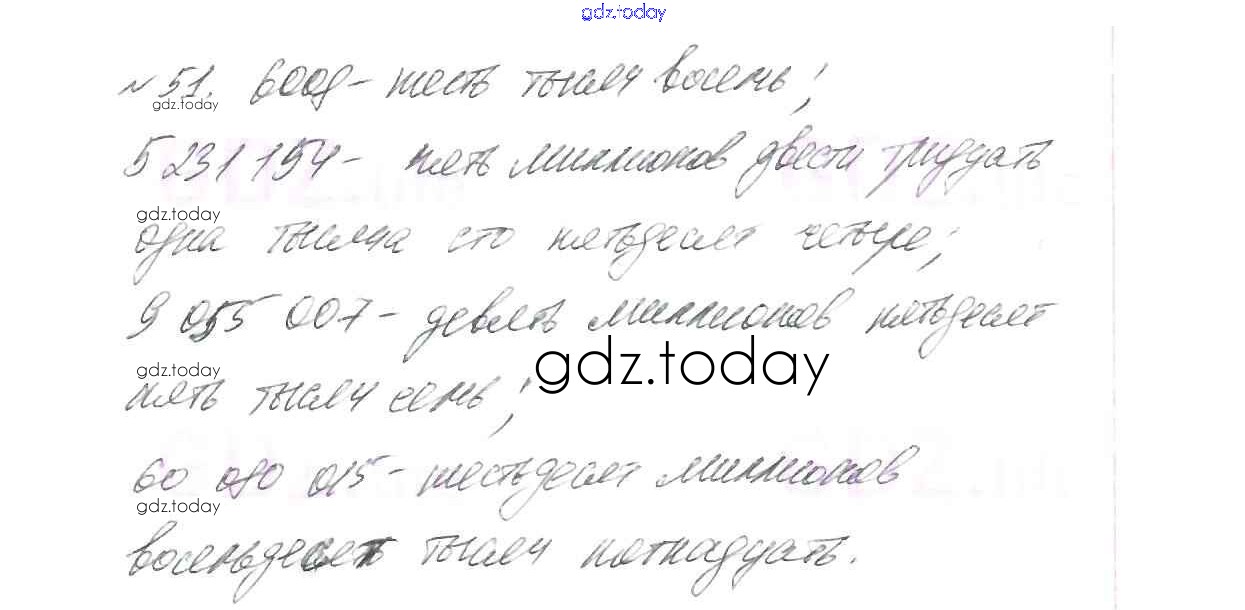 gdz.today
№ 51. 6008 - шесть тысяч восемь;
gdz.today
5 231 154 - пять миллионов двести тридцать
gdz.today
одна тысяча сто пятьдесят четыре;
9 055 007 - девять миллионов пятьдесят
gdz.today
gdz.today
пять тысяч семь;
60 080 015 - шестьдесят миллионов
gdz.today
восемьдесят тысяч пятнадцать.